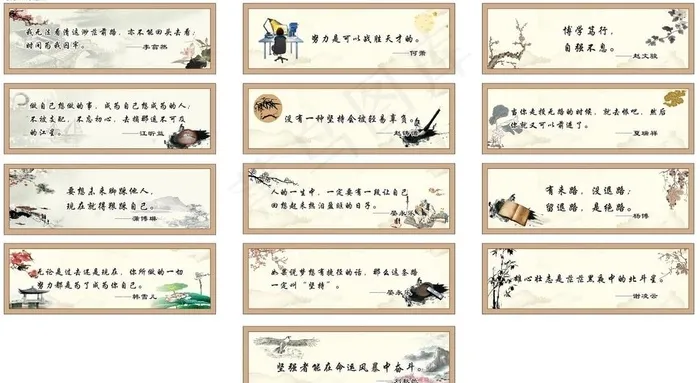 我无法看清遥远的前路，亦不能回头去看，
时间为我囚牢。
——李言然
努力是可以战胜天才的。
——何萧
博学笃行，
自强不息。
——赵文骏
做自己想做的事，成为自己想成为的人；
不被支配，不忘初心，去撷那遥不可及
的江星。
——江昕益
没有一种坚持会被轻易辜负。
当你走投无路的时候，就去恨吧，然后
你就又可以前进了。
——夏瑞祥
要想未来脚踩他人，
现在就得狠踩自己。
——蒲博琪
人的一生中，一定要有一段让自己
回想起来热泪盈眶的日子。
——晏永乐
有来路，没退路；
留退路，是绝路。
——杨博
无论是过去还是现在，你所做的一切
努力都是为了成为你自己。
——韩雪儿
如果说梦想有捷径的话，那么这条路
一定叫“坚持”。
——晏永乐
雄心壮志是茫茫黑夜中的北斗星。
——谢凌云
坚强者能在命运风暴中奋斗。